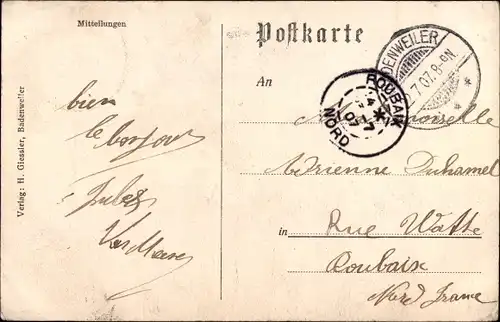 Mitteilungen
Postkarte
BADENWEILER
7.07.8-9N.
An
ROUBAIX
NORD
bien
le bonjour
Jules
Verlag: H. Giessler, Badenweiler
Mademoiselle
Adrienne Duhamel
in Rue Watte
Roubaix
Nord France